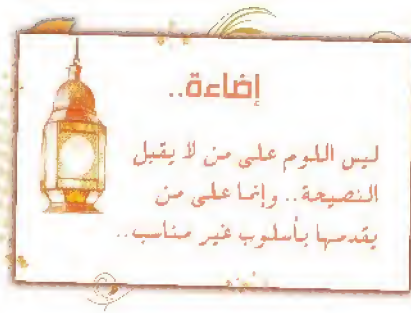 إضاءة..
ليس اللوم على من لا يقبل
النصيحة.. وإنما على من
يقدمها بأسلوب غير مناسب..